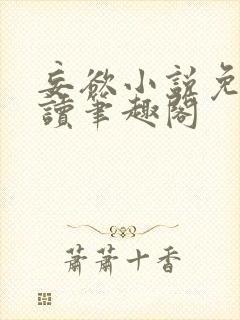 妄欲小説免
讀筆趣閣
蕭蕭十香